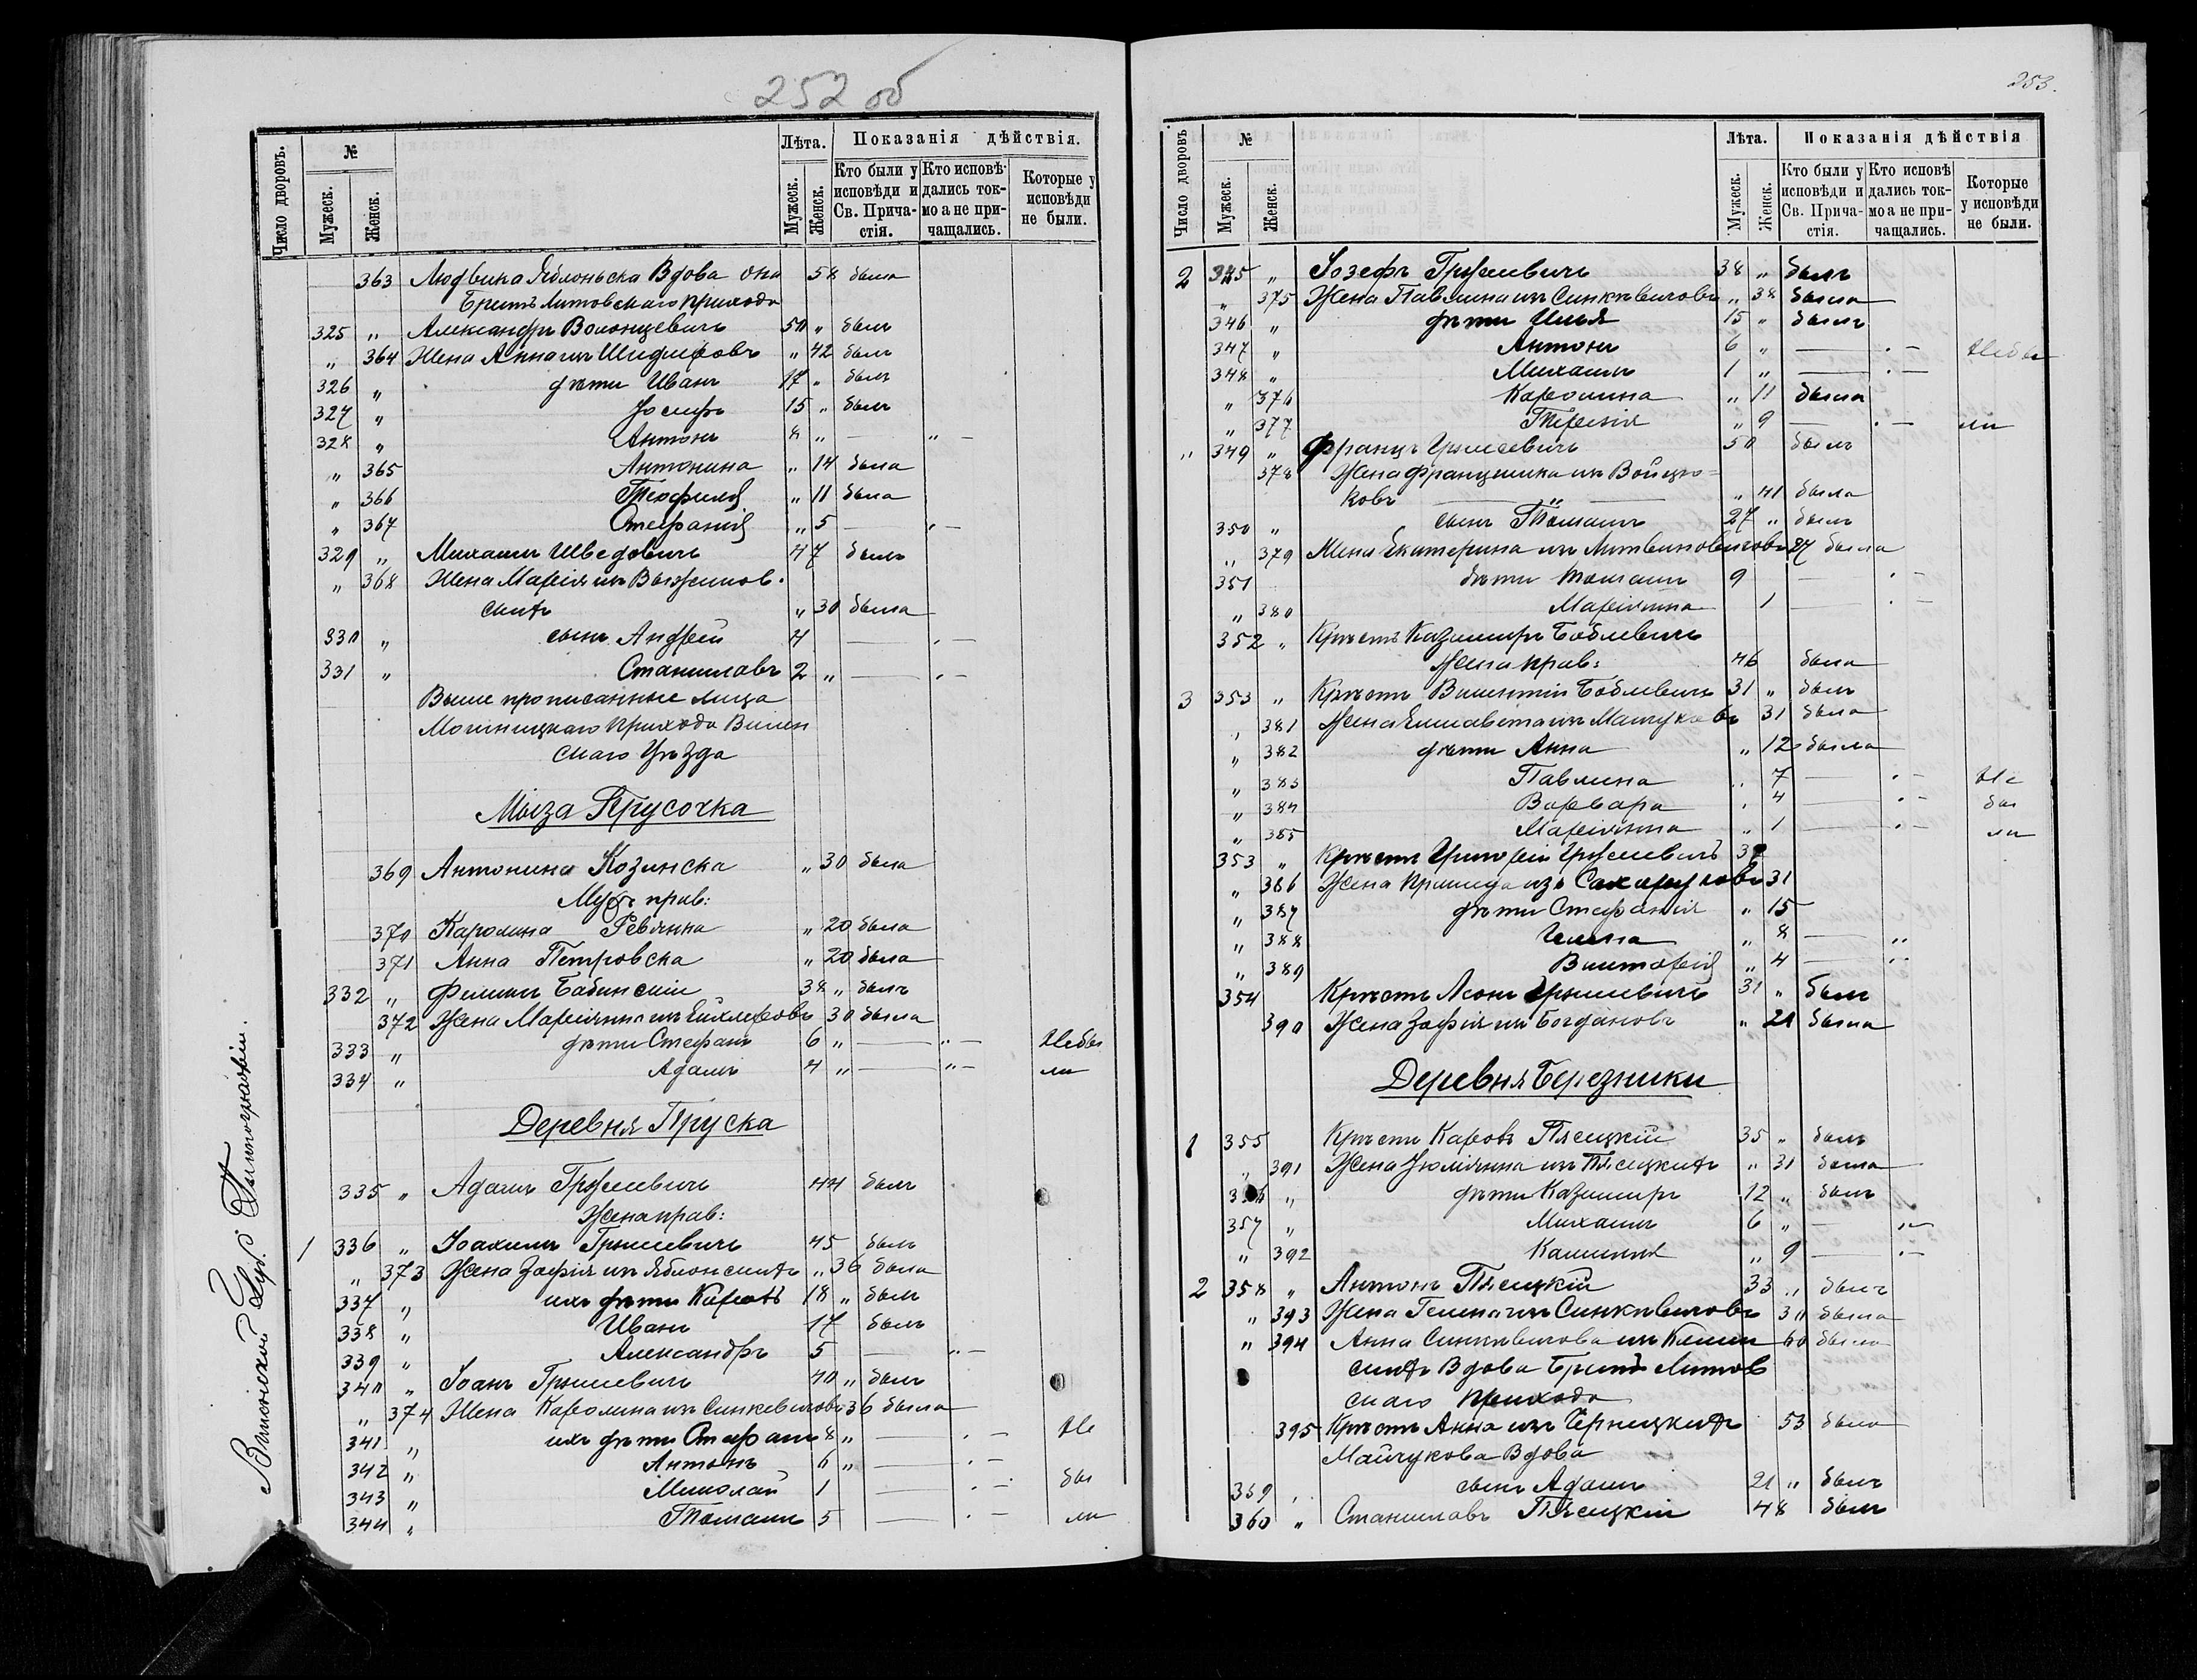 252 об
Число дворовъ. № Лѣта. Показанія дѣйствія.
Мужеск. Женск. Мужеск. Женск. Кто были у исповѣди и Св. Причастія. Кто исповѣдались токмо а не причащались. Которые у исповѣди не были.
363 Людвика Яблоньска Вдова она 58 была
Брестъ Литовскаго прихода
325 „ Александръ 50 „ былъ
„ 364 Жена Анна изъ „ 42 был
326 „ дѣти Иванъ 17 „ былъ
327 „ Іосифъ 15 „ былъ
328 „ Антонъ 8 „ — „ —
„ 365 Антонина „ 14 была
„ 366 Теофилія „ 11 была
„ 367 Стефанія „ 5 — „ —
329 „ Михаилъ Шведовичъ 47 былъ
„ 368 Жена Марія изъ
скихъ „ 30 была
330 „ сынъ Андрей 4 — „ —
331 „ Станиславъ 2 „ — „ —
Выше прописанные лица
прихода Вилен
скаго Уѣзда
Мыза Прусочка
369 Антонина Козинска „ 30 была
Мужъ прав:
370 Каролина Ревянка „ 20 была
371 Анна Петровска „ 20 была
332 „ Филипъ Бабинскій 38 „ былъ
372 Жена Маріянна изъ 30 была
333 „ дѣти Стефанъ 6 „ — „ — Небы
334 „ Адамъ 4 „ — „ — ли
Деревня Пруска
335 „ Адамъ Грушевичъ 44 былъ
Жена прав:
1 336 „ Іоахимъ Грышевичъ 45 былъ
„ 373 Жена Зафія изъ Яблонскихъ „ 36 была
337 „ ихъ дѣти Карольъ 18 „ былъ
338 „ Иванъ 17 былъ
339 „ Александръ 5 — „ —
340 „ Іоанъ Грышевичъ 40 „ былъ
„ 374 Жена Каролина изъ Синкевичовъ 36 была
341 „ ихъ дѣти Стефанъ 8 „ — „ — Не
342 „ Антонъ 6 „ — „ —
343 „ Миколай 1 — „ — бы
344 „ Томашъ 5 — „ — ли
Виленской Губ. Типографіи.
253.
Число дворовъ № Лѣта. Показанія дѣйствія
Мужеск. Женск. Мужеск. Женск. Кто были у исповѣди и Св. Причастія. Кто исповѣдались токмо а не причащались. Которые у исповѣди не были.
2 345 „ Іозефъ Грушевичъ 38 „ былъ
„ 375 Жена Павлина изъ Синкѣвичовъ „ 38 была
346 „ дѣти Илья 15 „ былъ
347 „ Антонъ 6 „ — „ — Небы
348 „ Михаилъ 1 „ — „ —
„ 376 Каролина „ 11 была
„ 377 Терезія „ 9 — „ — ли
„ 349 „ Францъ 50 былъ
378 Жена Францишка изъ Войцю=
ковъ — „ — „ 41 была
350 „ сынъ Томашъ 27 „ былъ
„ 379 Жена Екатерина изъ Литвиновичовъ 27 была
351 дѣти Томашъ 9 — „ —
„ 380 Маріянна 1 — „ —
352 „ Крѣстъ Казимиръ Боблевичъ
Жена прав: 46 была
3 353 „ Крѣстъ Викентій Боблевичъ 31 „ былъ
„ 381 Жена Елисавета изъ 31 была
„ 382 дѣти Анна „ 12 была
„ 383 Павлина „ 7 — „ — Не
„ 384 Варвара „ 4 — „ — бы
„ 385 Маріянна „ 1 — „ — ли
353 „ Крѣстъ Григорій Грушевичъ 37
„ 386 Жена изъ 31
„ 387 дѣти Стефанія „ 15
„ 388 „ 8 — „
„ 389 Викторія „ 4 — „
354 Крѣстъ Леонъ Грышевичъ 31 „ былъ
390 Жена Зафія изъ Богдановъ „ 21 была
Деревня Березники
1 355 Крѣстъ Каролъ Плесцкій 35 „ былъ
„ 391 Жена Юліянна изъ „ 31 была
356 „ дѣти Казимиръ 12 „ былъ
357 „ Михаилъ 6 „ — „ —
„ 392 „ 9 — „ —
2 358 „ Антонъ Плесцкій 33 „ былъ
„ 393 Жена Гелена изъ Синкѣвичовъ 30 была
„ 394 Анна Синкѣвичова изъ 60 была
скихъ Вдова Брестъ Литов
скаго прихода
395 Крѣстъ Анна изъ Чѣрницкихъ 53 была
Майчукова Вдова
359 „ сынъ Адамъ 21 „ былъ
360 „ Станиславъ Плесцкій 48 былъ